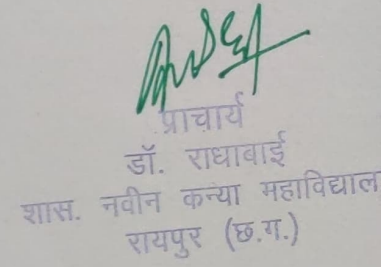 प्राचार्य
डॉ. राधाबाई
शास. नवीन कन्या महाविद्याल
रायपुर (छ.ग.)